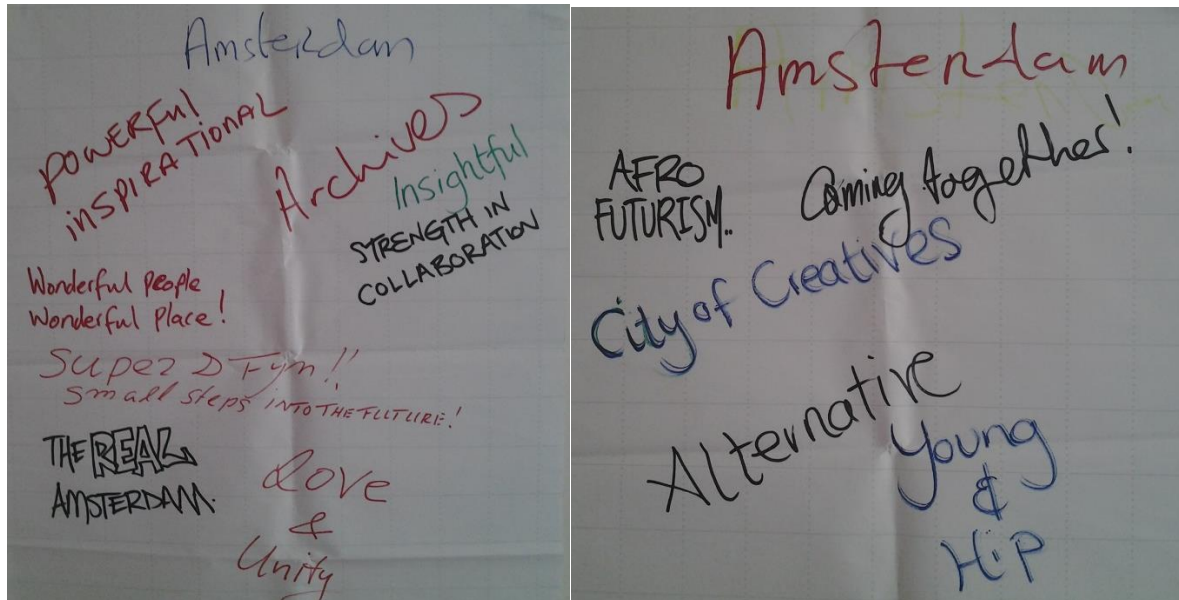 Amsterdam
POWERFUL
INSPIRATIONAL
Archives
Insightful
STRENGTH IN
COLLABORATION
Wonderful People
Wonderful Place!
Super D Fyn!!
Small steps INTO THE FUTURE!
THE REAL
AMSTERDAM.
Love
&
Unity
Amsterdam
AFRO
FUTURISM..
Coming together!
City of Creatives
Alternative
Young
&
Hip